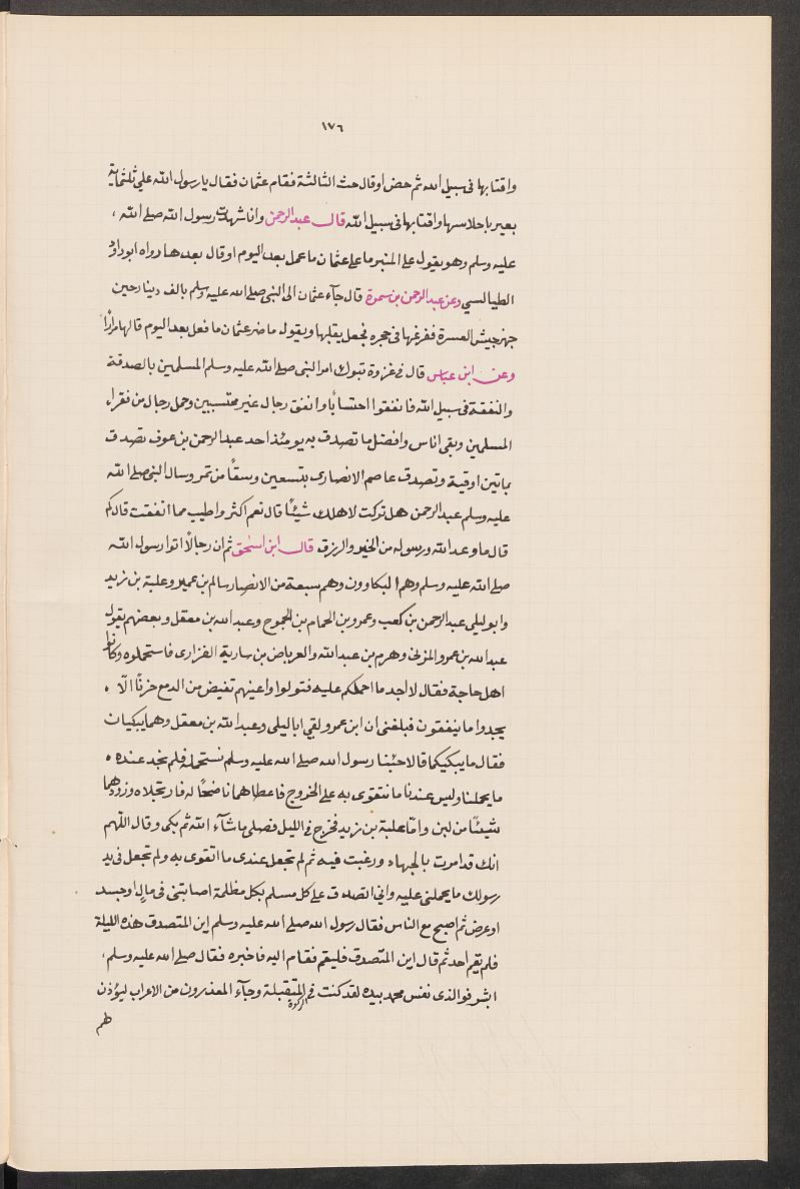 ١٧٦
واقتابها فى سبيل الله ثم حض او قال حث الثالثة فقام عثمان فقال يا رسول الله علي ثلثماية
بعير باحلاسها واقتابها فى سبيل الله قال عبد الرحمن وانا شهدت رسول الله صلى الله
عليه وسلم وهو يقول على المنبر ما على عثمان ما عمل بعد اليوم او قال بعدها رواه ابو داؤد
الطيالسي وعن عبد الرحمن بن سمرة قال جآء عثمان الى النبى صلى الله عليه وسلم بالف دينار حين
جهز جيش العسرة ففرغها فى حجره فجعل يقلبها ويقول ما ضر عثمان ما فعل بعد اليوم قالها مرارًا
وعن ابن عباس قال فى غزوة تبوك امر النبى صلى الله عليه وسلم المسلمين بالصدقة
والنفقة فى سبيل الله فانفقوا احتسابًا وانفق رجال غير محتسبين وحمل رجال من فقراء
المسلمين وبقى اناس وافضل ما تصدق به يومئذ احد عبد الرحمن بن عوف تصدق
بماتين اوقية وتصدق عاصم الانصارى بتسعين وسقًا من تمر وسال النبى صلى الله
عليه وسلم عبد الرحمن هل تركت لاهلك شيئًا قال نعم اكثر واطيب مما انفقت قال كم
قال ما وعد الله ورسوله من الخير والرزق قال ابن اسحق ثم ان رجالًا اتوا رسول الله
صلى الله عليه وسلم وهم البكاوون وهم سبعة من الانصار سالم بن عمير وعلبة بن زيد
وابو ليلى عبد الرحمن بن كعب وعمرو بن الحمام بن الجموح وعبد الله بن معقل وبعضهم يقول
عبد الله بن عمرو المزنى وهرم بن عبد الله والعرباض بن سارية الفزارى فاستحملوه وكانوا
اهل حاجة فقال لا اجد ما احملكم عليه فتولوا واعينهم تفيض من الدمع حزنًا الّا
يجدوا ما ينفقون فبلغنى ان ابن عمرو لقي ابا ليلى وعبد الله بن معقل وهما يبكيان
فقال ما يبكيكما قالا جئنا رسول الله صلى الله عليه وسلم نستحمله فلم نجد عنده
ما يحملنا وليس عندنا ما نتقوى به على الخروج فاعطاهما ناضحًا له فارتحلاه وزودهما
شيئًا من لبن وامّا علبة بن زيد فخرج فى الليل فصلى ما شآء الله ثم بكى وقال اللهم
انك قد امرت بالجهاد ورغبت فيه ثم لم تجعل عندى ما اتقوى به ولم تجعل فى يد
رسولك ما يحملنى عليه وانى اتصدق على كل مسلم بكل مظلمة اصابتنى فى مال او جسد
او عرض ثم اصبح مع الناس فقال رسول الله صلى الله عليه وسلم اين المتصدق هذه الليلة
فلم يقم احد ثم قال اين المتصدق فليقم فقام اليه فاخبره فقال صلى الله عليه وسلم
ابشر فوالذى نفس محمد بيده لقد كنت فى المتقبلة وجآء المعذرون من الاعراب ليؤذن
الزكوة
لهم